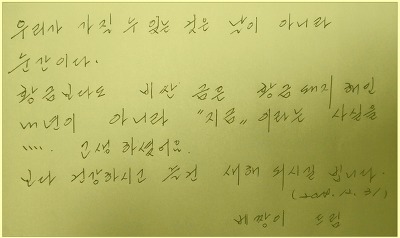 우리가 가질 수 있는 것은 날이 아니라
순간이다.
황금보다도 비싼 금은 황금돼지해인
내년이 아니라 "지금" 이라는 사실을
..... 고생 하셨어요.
보다 건강하시고 복된 새해 되시길 빕니다.
베짱이 드림